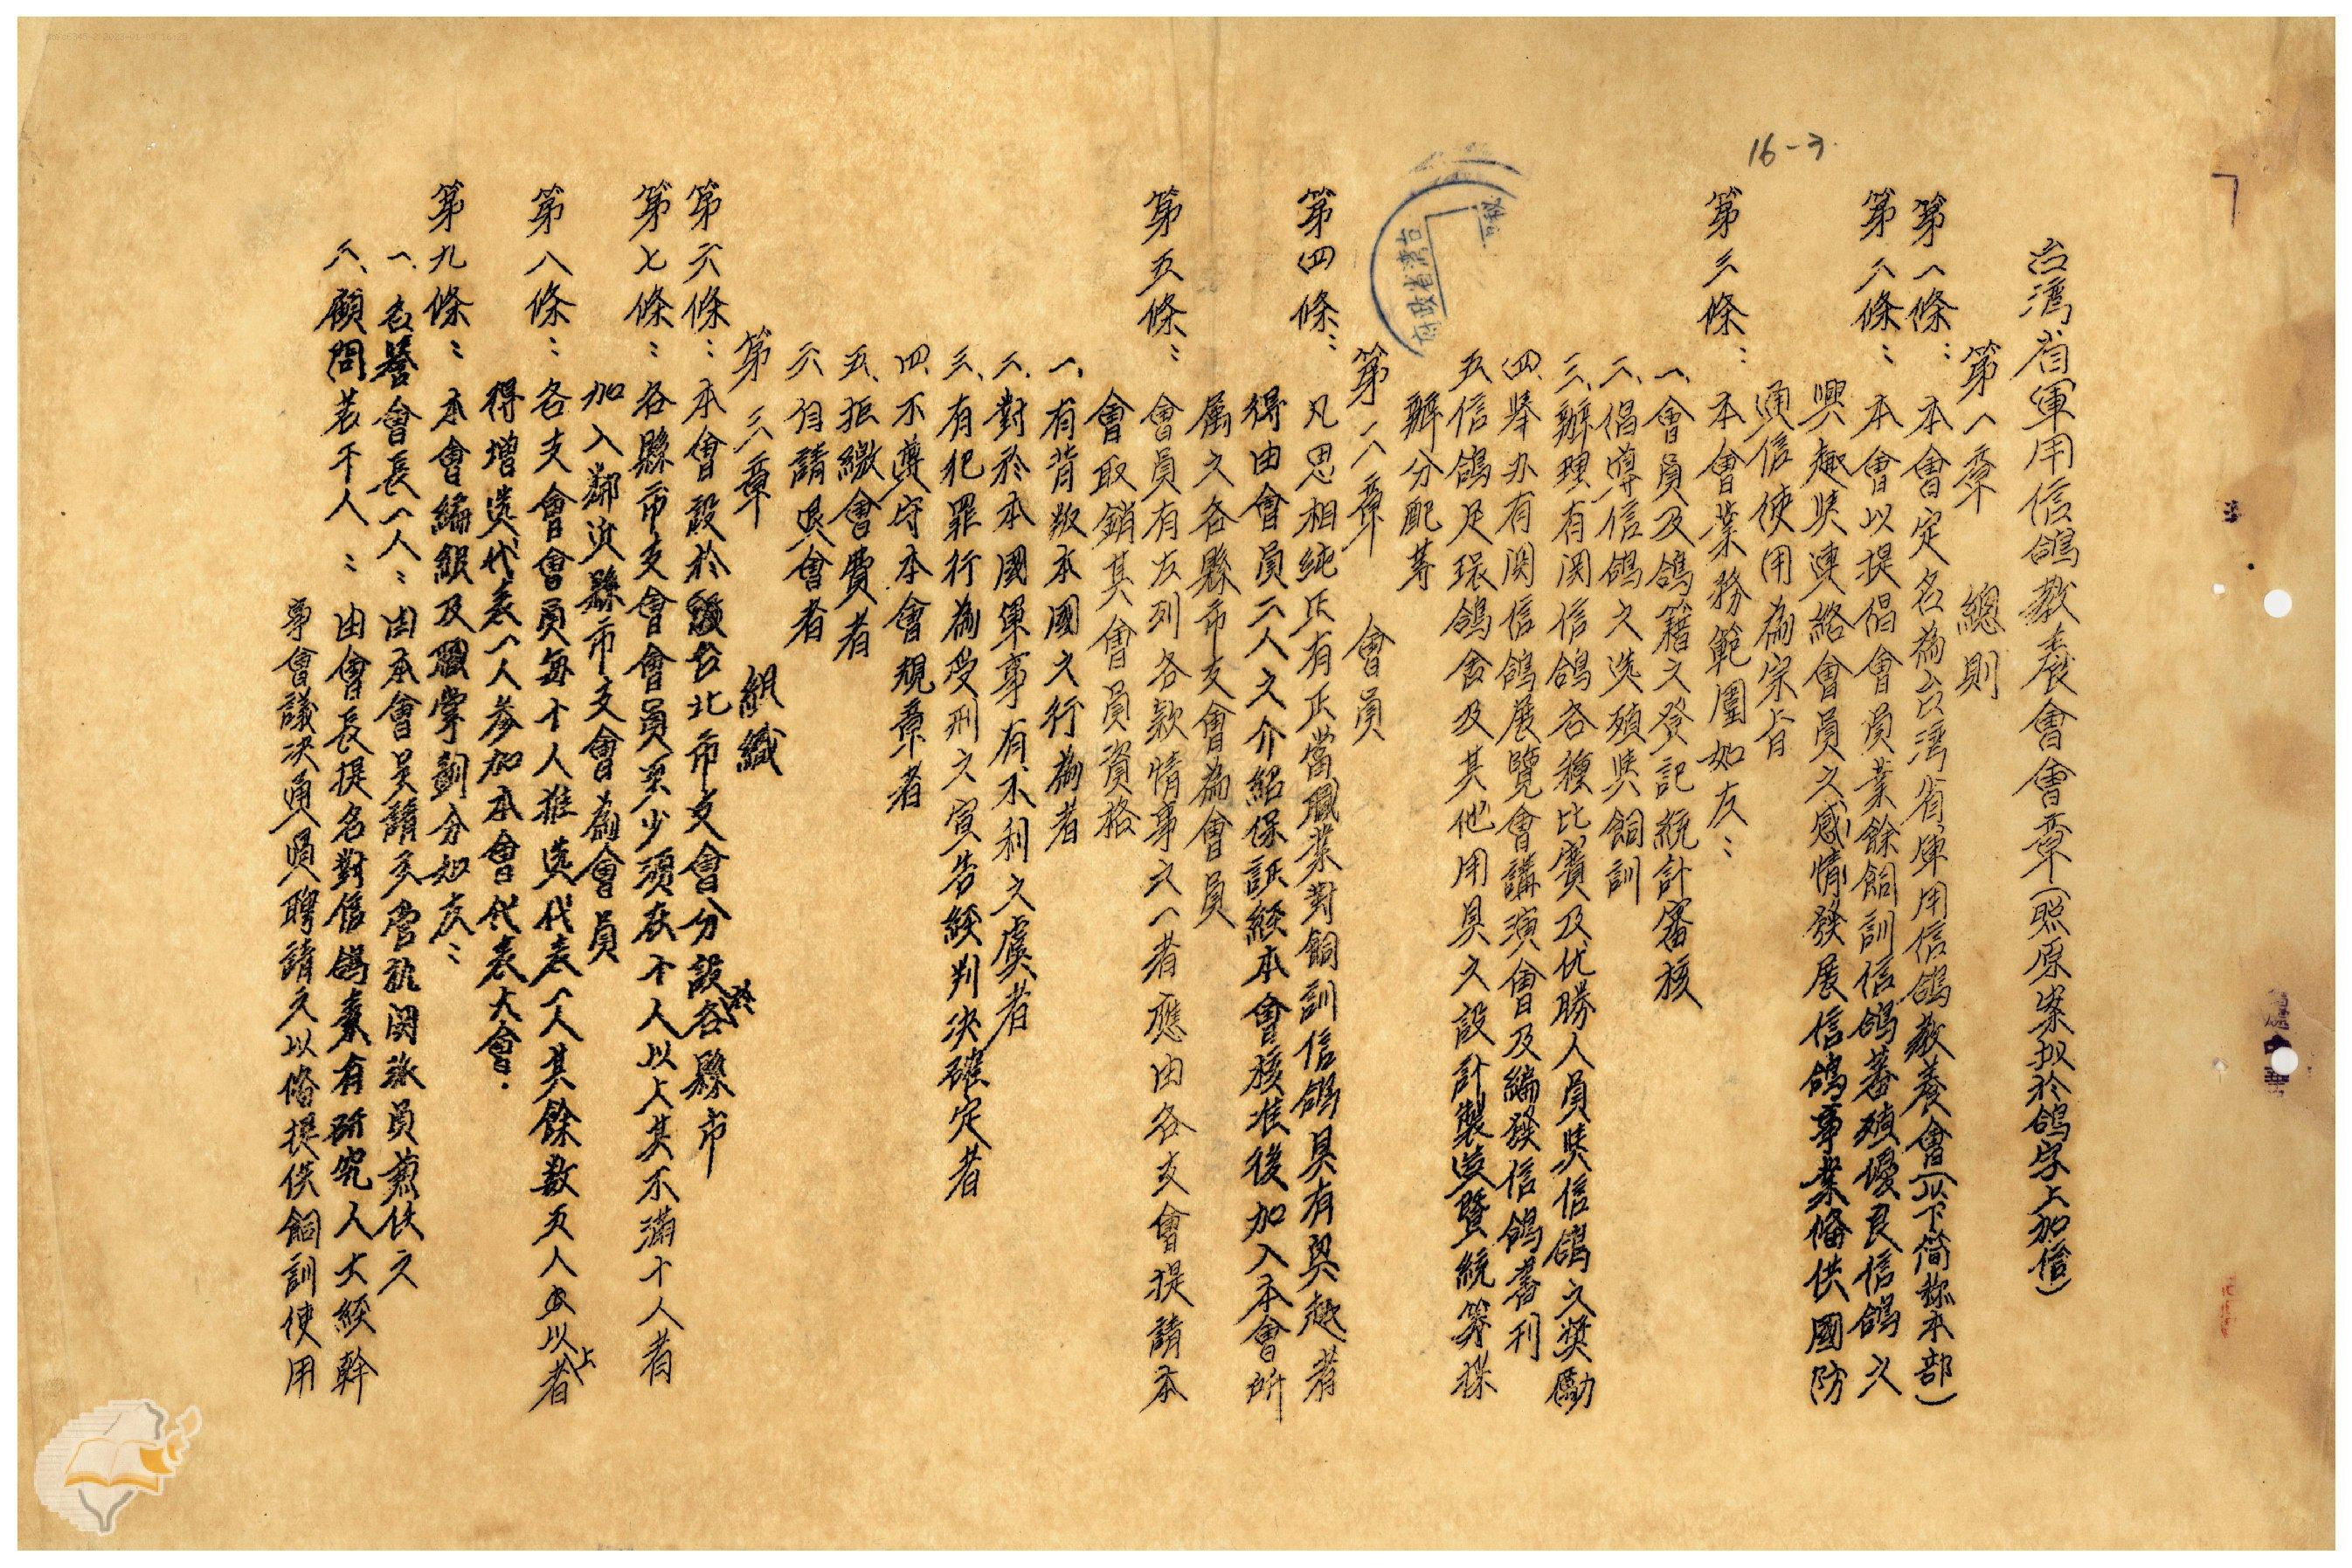 16-3.
台湾省軍用信鴿教養會會章(照原案拟於鴿字上加信)
第一章　總則
第一條：本會定名為台湾省軍用信鴿教養會(以下简称本部)
第二條：本會以提倡會員業餘飼訓信鴿蕃殖優良信鴿之
興趣奖連絡會員之感情發展信鴿事業俻供國防
通信使用為宗旨
第三條：本會業務範圍如左：
一、會員及鴿籍之登記統計審核
二、倡導信鴿之选殖奖飼訓
三、辦理有関信鴿各種比賽及优勝人員奖信鴿之奖勵
四、舉办有関信鴿展覽會講演會及編發信鴿書刊
五信鴿足環鴿舍及其他用具之設計製造暨統筹採
辦分配等
第二章　會員
第四條：凡思想純正有正當職業對飼訓信鴿具有興趣者
得由會員二人之介紹保証經本會核准後加入本會所
属之各縣市支會為會員
第五條：會員有左列各款情事之一者應由各支會提請本
會取銷其會員資格
一、有背叛本國之行為者
二、對於本國軍事有不利之虞者
三、有犯罪行為受刑之宣告經判決確定者
四、不遵守本會規章者
五、拒繳會費者
六自請退會者
第三章　組織
第六條：本會設於台北市支會分設於各縣市
第七條：各縣市支會會員至少須在十人以上其不滿十人者
加入鄰近縣市支會為會員
第八條：各支會會員每十人推选代表一人其餘数五人以上者
得增选代表一人参加本會代表大會.
第九條：本會編組及職掌劃分如左：
一、名誉會長一人：由本會呈請主管机関派員兼任之
二、顧問若干人：由會長提名對信鴿素有研究人士經幹
事會議決通過聘請之以俻提供飼訓使用
台湾省政府